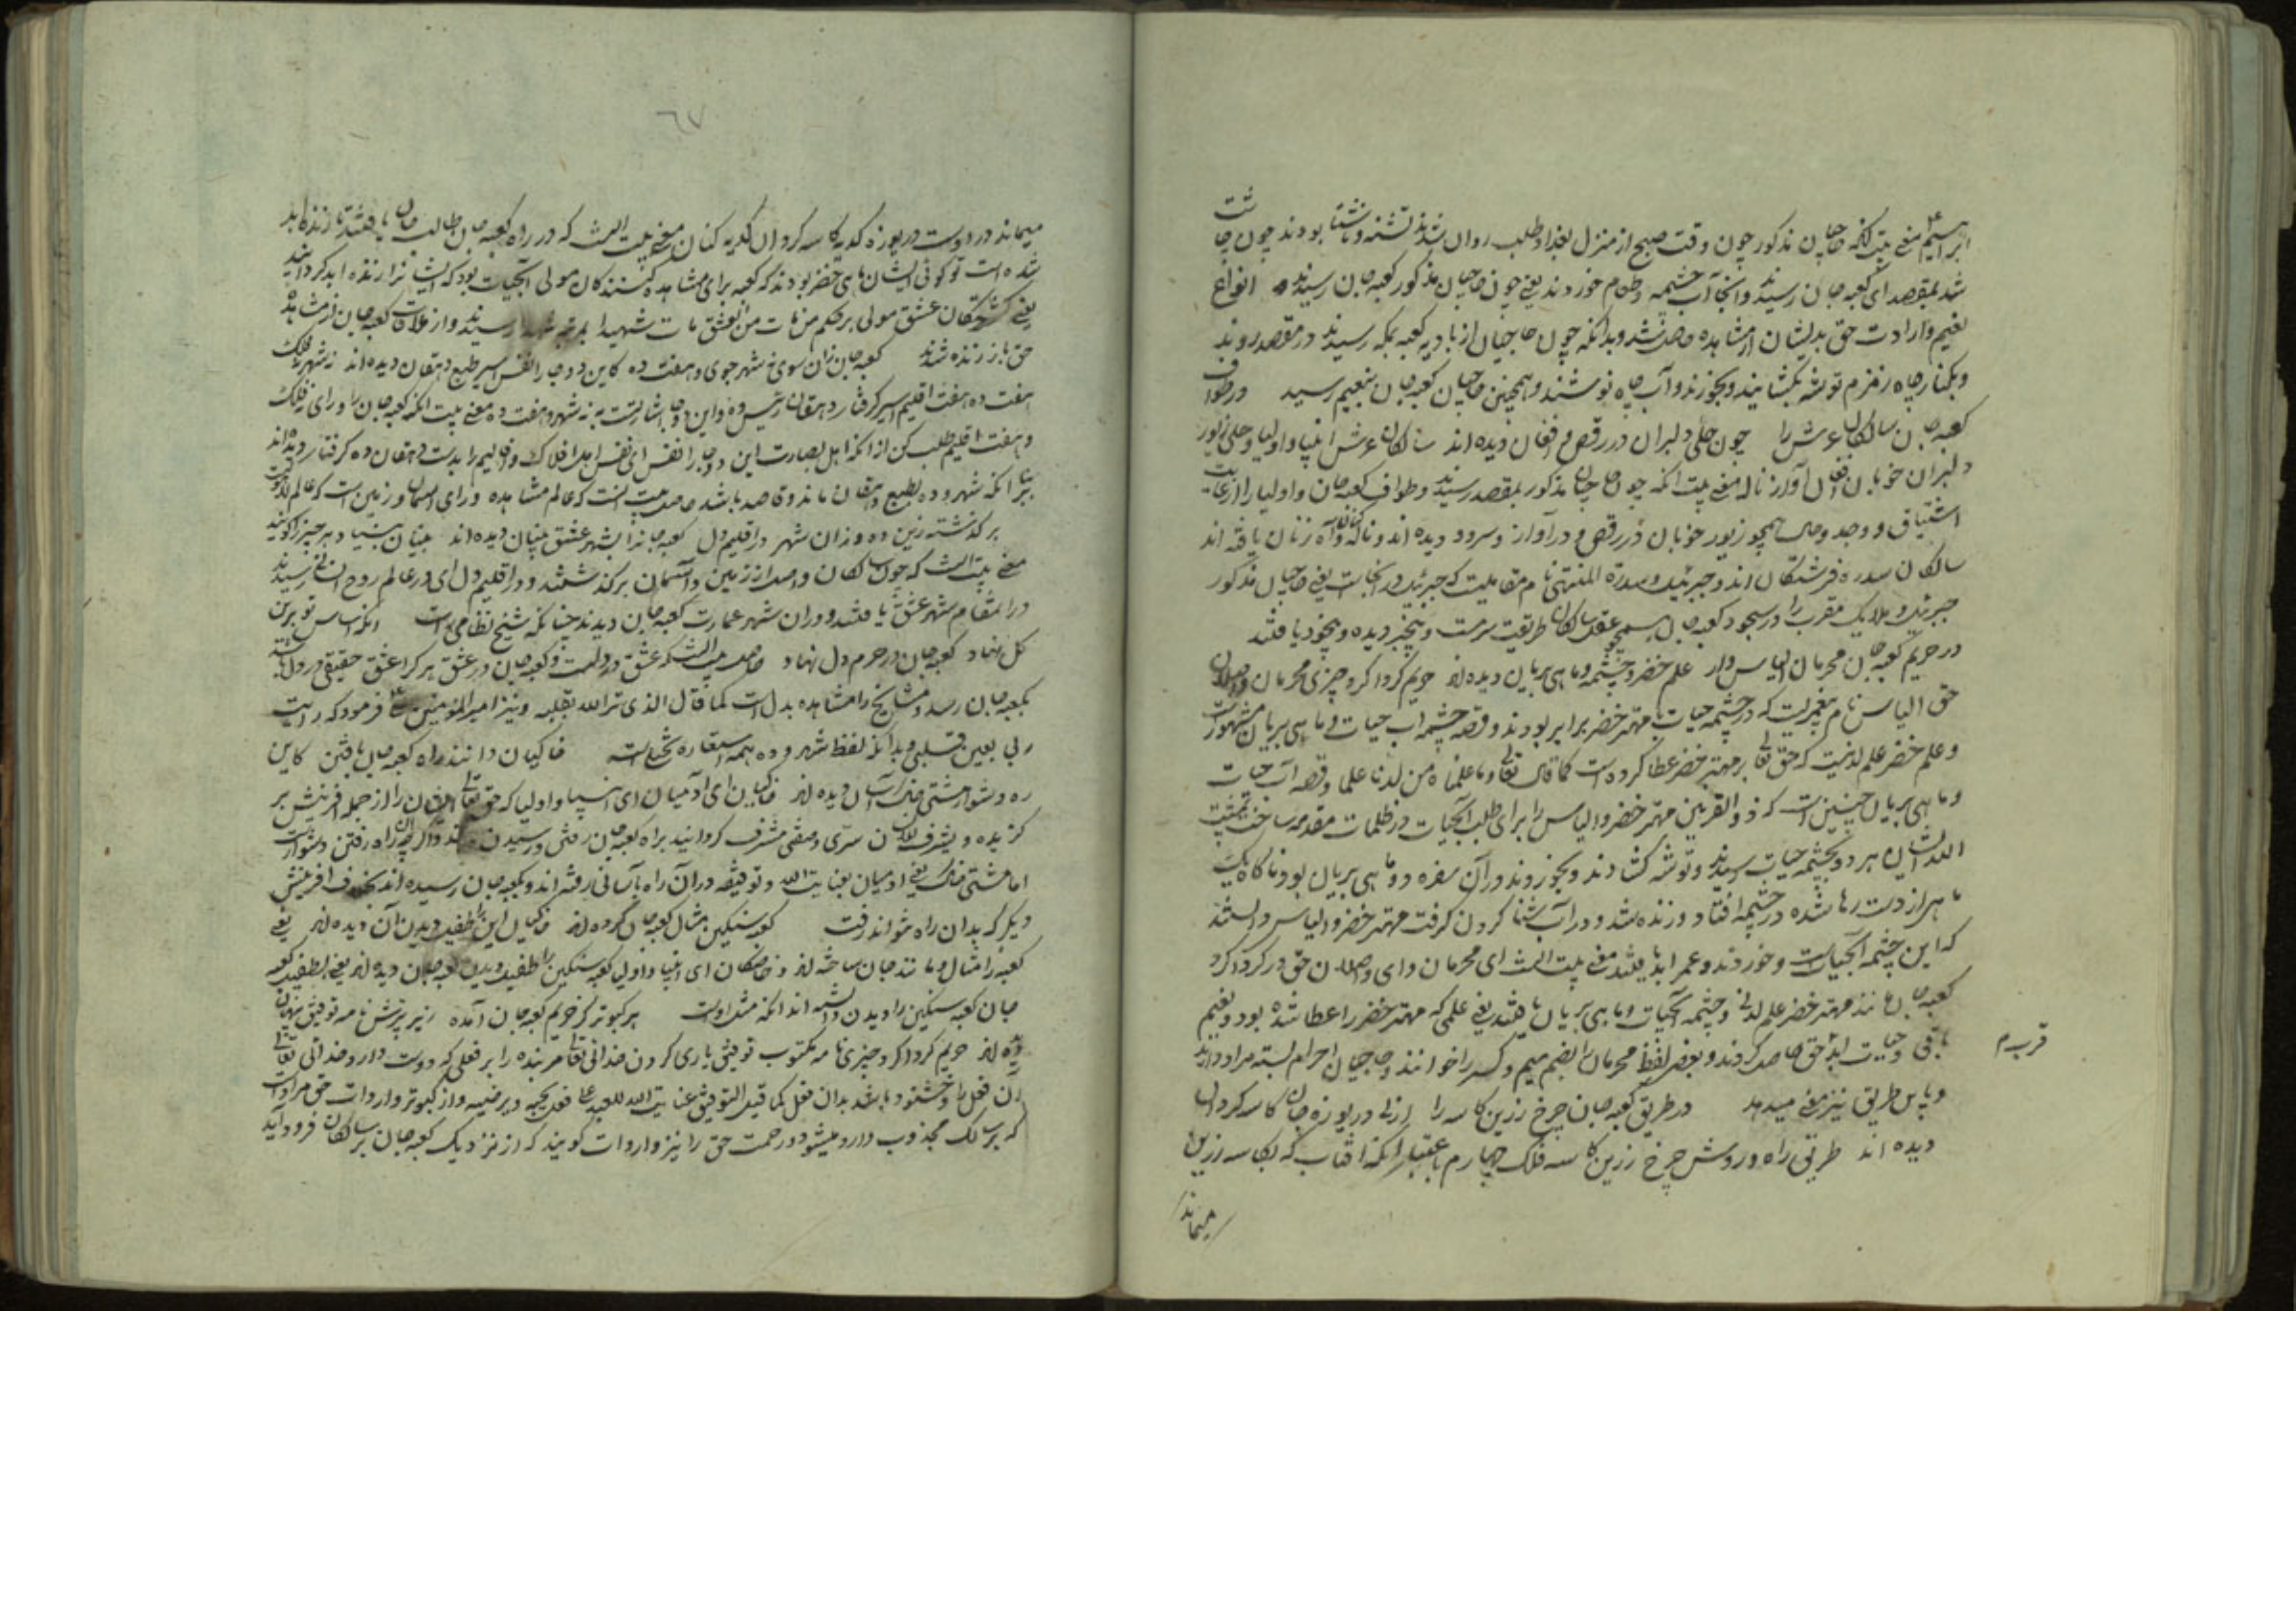 ابراهیم معنی بیت آنکه حاجیان مذکور چون وقت صبح از منزل بغداد طلب روان شدند تشنه و ناشتا بودند چون چاشت
شد بمقصد ای کعبه جان رسیدند و آنجا آب چشمه و طعام خوردند یعنی چون حاجیان مذکور کعبه جان رسیدند انواع
نعیم و ارادت حق بدیشان از مشاهده حاصل شد و بدانکه چون حاجیان از بادیه کعبه بمکه رسیدند در مقصد روند
و بکنار چاه زمزم توشه بکشایند و بخورند و آب چاه نوشند و همچنین حاجیان کعبه جان بنعیم رسید در طواف
کعبه جان سالکان عرش را چون حلی دلبران در رقص و افغان دیده اند سالکان عرش انبیا و اولیا و حلی زیور
دلبران خوبان افغان آواز ناله معنی بیت آنکه چون حاجیان مذکور بمقصد رسیدند و طواف کعبه جان و اولیا را از غایت
اشتیاق و وجد و حال همچو زیور خوبان در رقص و در آواز و سرود دیده اند و ناله و آه زنان یافته اند
سالکان سدره فرشتگان اند و جبرئیل و سدرة المنتهی نام مقامیست که جبرئیل در آنجاست یعنی حاجیان مذکور
جبرئیل و ملایک مقرب را در سجود کعبه جان همچو عقل سالکان طریقت سرمست و بیخبر دیده و بیخود یافتند
در حریم کعبه جان محرمان الیاس وار علم خضر و چشمه و ماهی بریان دیده اند حریم گرداگرد چیزی محرمان واصلان
حق الیاس نام پیغمبریست که در چشمه حیات با مهتر خضر برابر بودند و قصه چشمه آب حیات و ماهی بریان مشهورست
و علم خضر علم لدنیست که حق تعالی بر مهتر خضر عطا کرده است کما قال تعالی و علمناه من لدنا علما و قصه آب حیات
و ماهی بریان چنین است که ذوالقرنین مهتر خضر و الیاس را برای طلب آبحیات در ظلمات مقدمه ساخت بمشیت
الله ایشان هر دو بچشمه حیات رسیدند و توشه کشادند و بخوردند و در آن سفره دو ماهی بریان بود ناگاه یک
ماهی از دست رها شده در چشمه افتاد و زنده شد و در آب شنا کردن گرفت مهتر خضر و الیاس دانستند
که این چشمه آبحیات است و خوردند و عمر ابد یافتند معنی بیت آنست ای محرمان و ای واصلان حق در گرداگرد
کعبه جان مانند مهتر خضر علم لدنی و چشمه آبحیات و ماهی بریان یافتند یعنی علمی که مهتر خضر را عطا شده بود و نعیم
باقی و حیات ابد حق حاصل کردند و بعضی لفظ محرمان را بضم میم و کسر را خوانند و حاجیان احرام بسته مراد دارند
قریب م
و باین طریق نیز معنی میدهد در طریق کعبه جان چرخ زرین کاسه را از پی دریوزه جان کاسه گردان
دیده اند طریق راه و روش چرخ زرین کاسه فلک چهارم باعتبار آنکه آفتاب که بکاسه زرین
میماند
٦٧
میماند در اوست دریوزه گدیه کاسه گردان گدیه کنان معنی بیت آنست که در راه کعبه جان طالب جان یافتند تا زنده ابد
شده است تو گوئی ایشان ماهی خضر بودند که کعبه برای مشاهده کنندگان مولی آبحیات بود که ایشان را زنده ابد گردانید
یعنی کشتگان عشق مولی بر حکم من مات من العشق مات شهیدا بمرتبه شهدا رسیدند و از ملاقات کعبه جان از مشاهده
حق باز زنده شدند کعبه جان زان سوی نه شهر جوی و هفت ده کاین دو جا را نفس اسیر طبع دهقان دیده اند نه شهر نه فلک
هفت ده هفت اقلیم اسیر گرفتار دهقان رئیس ده و این دو جا اشارتست به نه شهر و هفت ده معنی بیت آنکه کعبه جان را ورای نه فلک
و هفت اقلیم طلب کن از آنکه اهل بصارت این دو جا را نفس ای نفس اهل افلاک و اقالیم را بدست دهقان ده گرفتار دیده اند
بنابر آنکه شهر و ده بطبع دهقان ماند و قاصد باشد حاصل بیت آنست که عالم مشاهده ورای آسمان و زمین است که عالم لاهوت
بر گذشته زین ده و زان شهر در اقلیم دل کعبه جان را بشهر عشق بنیان دیده اند بنیان بنیاد هر چیز را گویند
معنی بیت آنست که چون سالکان واصل از زمین و آسمان بر گذشتند و در اقلیم دل ای در عالم روح انسانی رسیدند
در آن مقام شهر عشق یافتند و در آن شهر عمارت کعبه جان دیدند چنانکه شیخ نظامی راست آنکه اساس تو برین
گل نهاد کعبه جان در حرم دل نهاد حاصل بیت آنست که عشق در دلست و کعبه جان در عشق هر کرا عشق حقیقی در دل باشد
بکعبه جان رسد و مشایخ را مشاهده بدل است کما قال الذی ترا الله بقلبه و نیز امیرالمؤمنین علی فرمود که رایت
ربی بعین قلبی و بدانکه لفظ شهر و ده همه استعاره شیخ است خاکیان دانند راه کعبه جان یافتن کاین
ره دشوار مشتی خاک آسان دیده اند خاکیان ای آدمیان ای انبیا و اولیا که حق تعالی ایشان را از جمله آفرینش بر
گزیده و بشرف الانسان سرّی و صفتی مشرف گردانید براه کعبه جان رفتن و رسیدن دانند و اگرچه آن راه رفتن دشوار است
اما مشتی خاک یعنی آدمیان بعنایت الله و توفیقه در آن راه بآسانی رفته اند و بکعبه جان رسیده اند بخلاف آفرینش
دیگر که بدان راه نتواند رفت کعبه سنگین مثال کعبه جان کرده اند خاصگان این را طفیل دیدن آن دیده اند یعنی
کعبه را مثال و مانند جان ساخته اند و خاصگان ای انبیا و اولیا کعبه سنگین را طفیل دیدن کعبه جان دیده اند یعنی بطفیل کعبه
جان کعبه سنگین را دیدن دانسته اند آنکه مثل اوست هر کبوتر کز حریم کعبه جان آمده زیر پرش نامه توفیق پنهان
دیده اند حریم گرداگرد چیزی نامه مکتوب توفیق یاری کردن خدای تعالی مر بنده را بر فعلی که دوست دارد خدای تعالی
آن فعل را و خشنود باشد بدان فعل کما قیل التوفیق عنایت الله للعبد علی فعل یحبه و یرضیه و از کبوتر واردات حق مرادست
که بر سالک مجذوب وارد میشود و رحمت حق را نیز واردات گویند که از نزدیک کعبه جان بر سالکان فرود آید